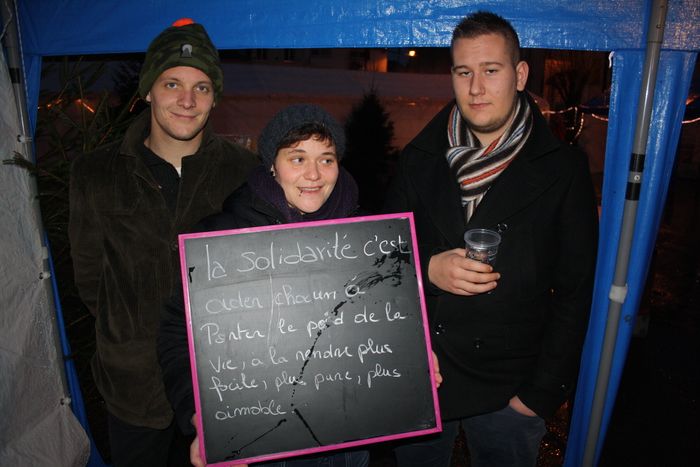 la Solidarité c'est
aider chacun à
Porter le poid de la
vie, a la rendre plus
facile, plus pure, plus
aimable.